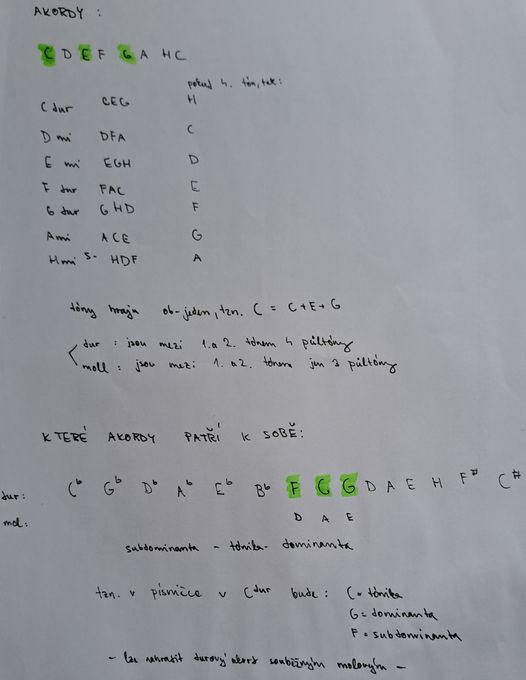 AKORDY :
C D E F G A H C
pokud 4. tón, tak:
C dur CEG H
D mi DFA C
E mi EGH D
F dur FAC E
G dur GHD F
Ami ACE G
Hmi 5- HDF A
tóny hraju ob-jeden, tzn. C = C+E+G
dur : jsou mezi 1. a 2. tónem 4 půltóny
moll : jsou mezi 1. a 2. tónem jen 3 půltóny
KTERÉ AKORDY PATŘÍ K SOBĚ:
dur: C♭ G♭ D♭ A♭ E♭ B♭ F C G D A E H F# C#
mol: D A E
subdominanta - tónika - dominanta
tzn. v písničce v C dur bude : C = tónika
G = dominanta
F = subdominanta
- lze nahradit durový akord souběžným molovým -